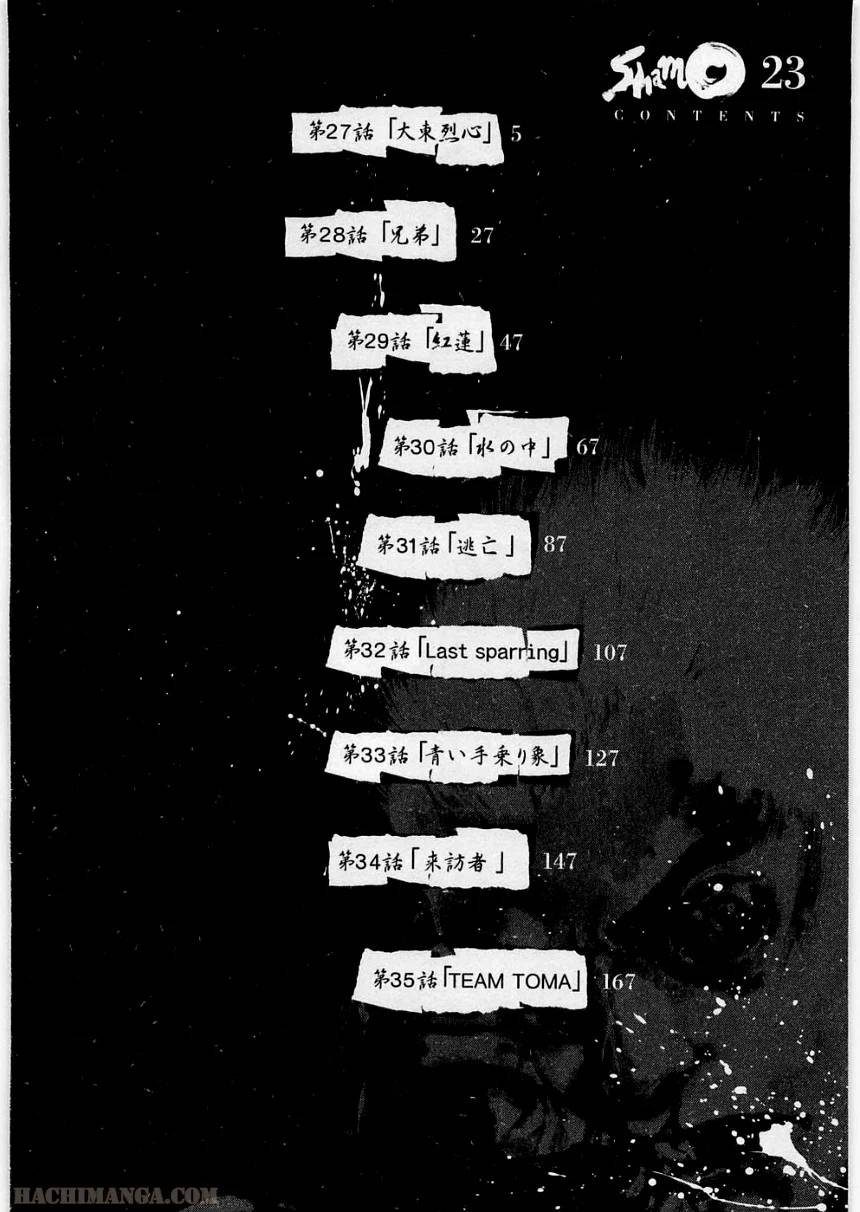 Shamo 23
CONTENTS
第27話「大東烈心」 5
第28話「兄弟」 27
第29話「紅蓮」 47
第30話「水の中」 67
第31話「逃亡」 87
第32話「Last sparring」 107
第33話「青い手乗り象」 127
第34話「来訪者」 147
第35話「TEAM TOMA」 167
HACHIMANGA.COM